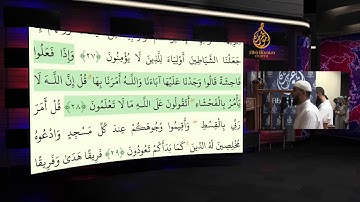 جَعَلْنَا الشَّيَاطِينَ أَوْلِيَاءَ لِلَّذِينَ لَا يُؤْمِنُونَ ﴿٢٧﴾ وَإِذَا فَعَلُوا
فَاحِشَةً قَالُوا وَجَدْنَا عَلَيْهَا آبَاءَنَا وَاللَّهُ أَمَرَنَا بِهَا ۗ قُلْ إِنَّ اللَّهَ لَا
يَأْمُرُ بِالْفَحْشَاءِ ۖ أَتَقُولُونَ عَلَى اللَّهِ مَا لَا تَعْلَمُونَ ﴿٢٨﴾ قُلْ أَمَرَ
رَبِّي بِالْقِسْطِ ۖ وَأَقِيمُوا وُجُوهَكُمْ عِندَ كُلِّ مَسْجِدٍ وَادْعُوهُ
مُخْلِصِينَ لَهُ الدِّينَ ۚ كَمَا بَدَأَكُمْ تَعُودُونَ ﴿٢٩﴾ فَرِيقًا هَدَىٰ وَفَرِيقًا